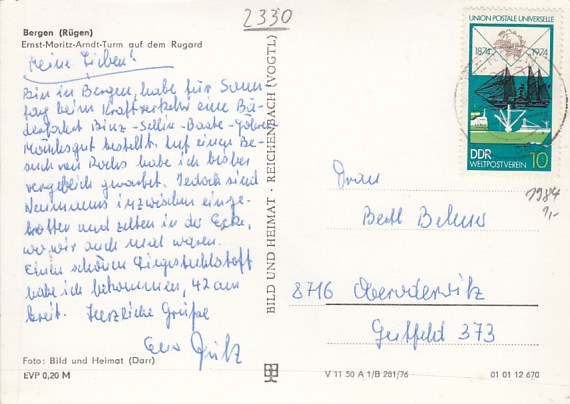 2330
Bergen (Rügen)
Ernst-Moritz-Arndt-Turm auf dem Rugard
Meine Lieben!
Bin in Bergen, habe für Sonn-
tag beim Kraftverkehr eine Bä-
derfahrt Binz-Sellin-Baabe-Göhren
Mönchgut bestellt. Auf einen Be-
such von habe ich bisher
vergeblich gewartet. Jedoch sind
Neumanns inzwischen einge-
troffen und zelten in der Ecke,
wo wir auch mal waren.
Einen schönen Liegestuhlstoff
habe ich bekommen, 42 cm
breit. Herzliche Grüße
Euer
Foto: Bild und Heimat (Darr)
EVP 0,20 M
BILD UND HEIMAT · REICHENBACH (VOGTL)
UNION POSTALE UNIVERSELLE
1874 1974
DDR
WELTPOSTVEREIN 10
1984
1,-
Frau
8716 Oberoderwitz
373
V 11 50 A 1/B 281/76 01 01 12 670